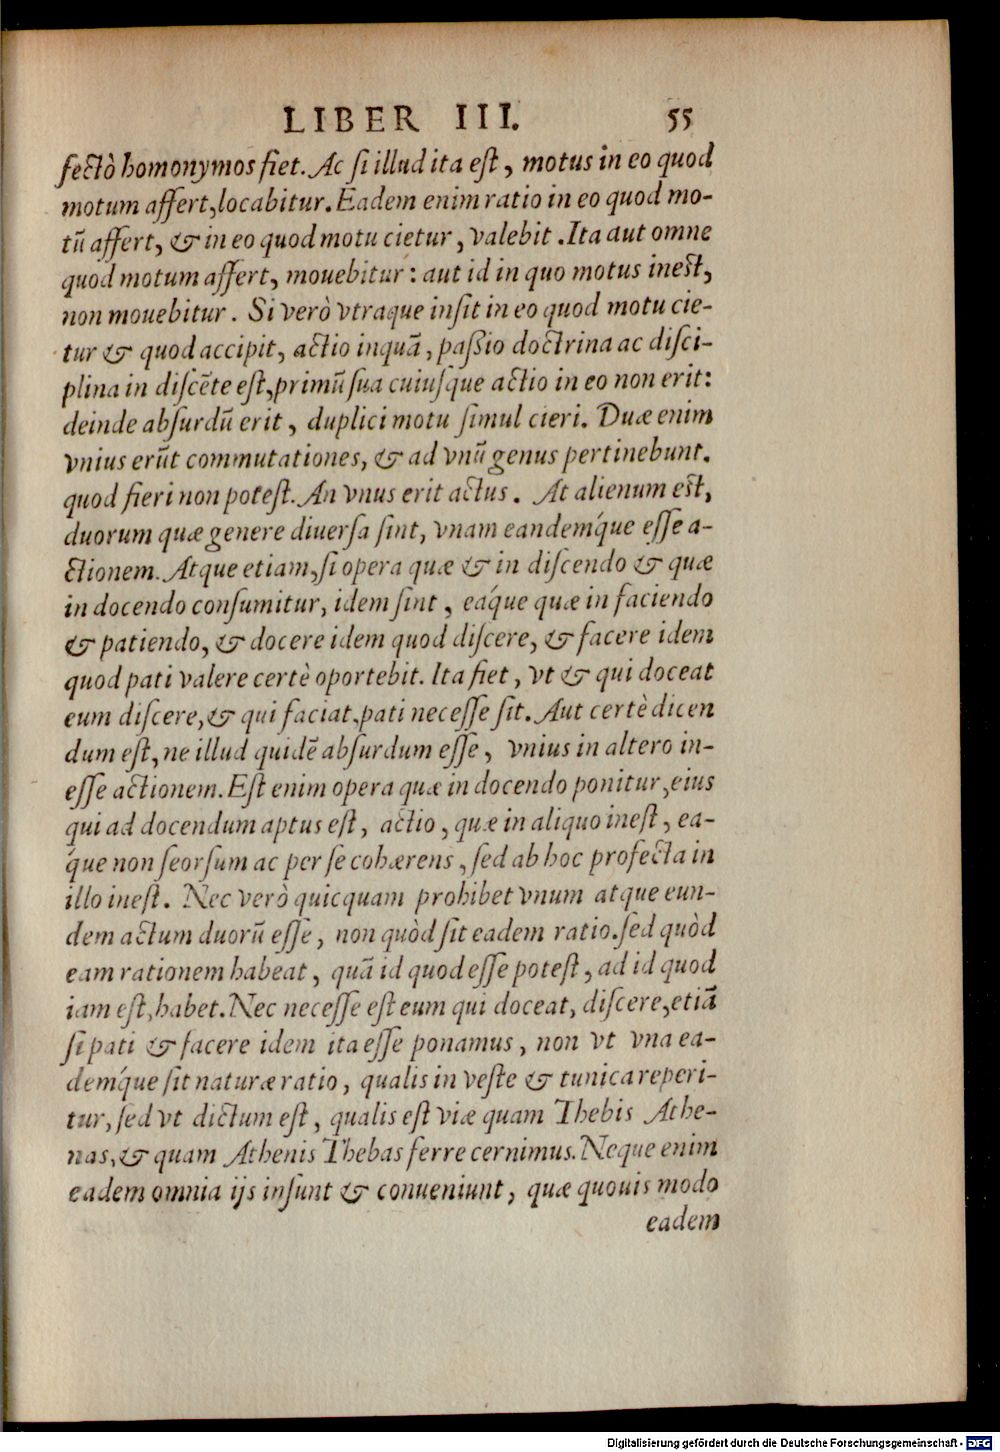 LIBER III. 55
fectò homonymos fiet. Ac si illud ita est, motus in eo quod
motum affert, locabitur. Eadem enim ratio in eo quod mo-
tū affert, & in eo quod motu cietur, valebit. Ita aut omne
quod motum affert, mouebitur: aut id in quo motus inest,
non mouebitur. Si verò vtraque insit in eo quod motu cie-
tur & quod accipit, actio inquā, paßio doctrina ac disci-
plina in discēte est, primū sua cuiusque actio in eo non erit:
deinde absurdū erit, duplici motu simul cieri. Duæ enim
vnius erūt commutationes, & ad vnū genus pertinebunt.
quod fieri non potest. An vnus erit actus. At alienum est,
duorum quæ genere diuersa sint, vnam eandemq́ue esse a-
ctionem. Atque etiam, si opera quæ & in discendo & quæ
in docendo consumitur, idem sint, eaq́ue quæ in faciendo
& patiendo, & docere idem quod discere, & facere idem
quod pati valere certè oportebit. Ita fiet, vt & qui doceat
eum discere, & qui faciat, pati necesse sit. Aut certè dicen
dum est, ne illud quidē absurdum esse, vnius in altero in-
esse actionem. Est enim opera quæ in docendo ponitur, eius
qui ad docendum aptus est, actio, quæ in aliquo inest, ea-
q́ue non seorsum ac per se cohærens, sed ab hoc profecta in
illo inest. Nec verò quicquam prohibet vnum atque eun-
dem actum duorū esse, non quòd sit eadem ratio. sed quòd
eam rationem habeat, quā id quod esse potest, ad id quod
iam est, habet. Nec necesse est eum qui doceat, discere, etiā
si pati & facere idem ita esse ponamus, non vt vna ea-
demq́ue sit naturæ ratio, qualis in veste & tunica reperi-
tur, sed vt dictum est, qualis est viæ quam Thebis Athe-
nas, & quam Athenis Thebas ferre cernimus. Neque enim
eadem omnia ijs insunt & conueniunt, quæ quouis modo
eadem
Digitalisierung gefördert durch die Deutsche Forschungsgemeinschaft - DFG